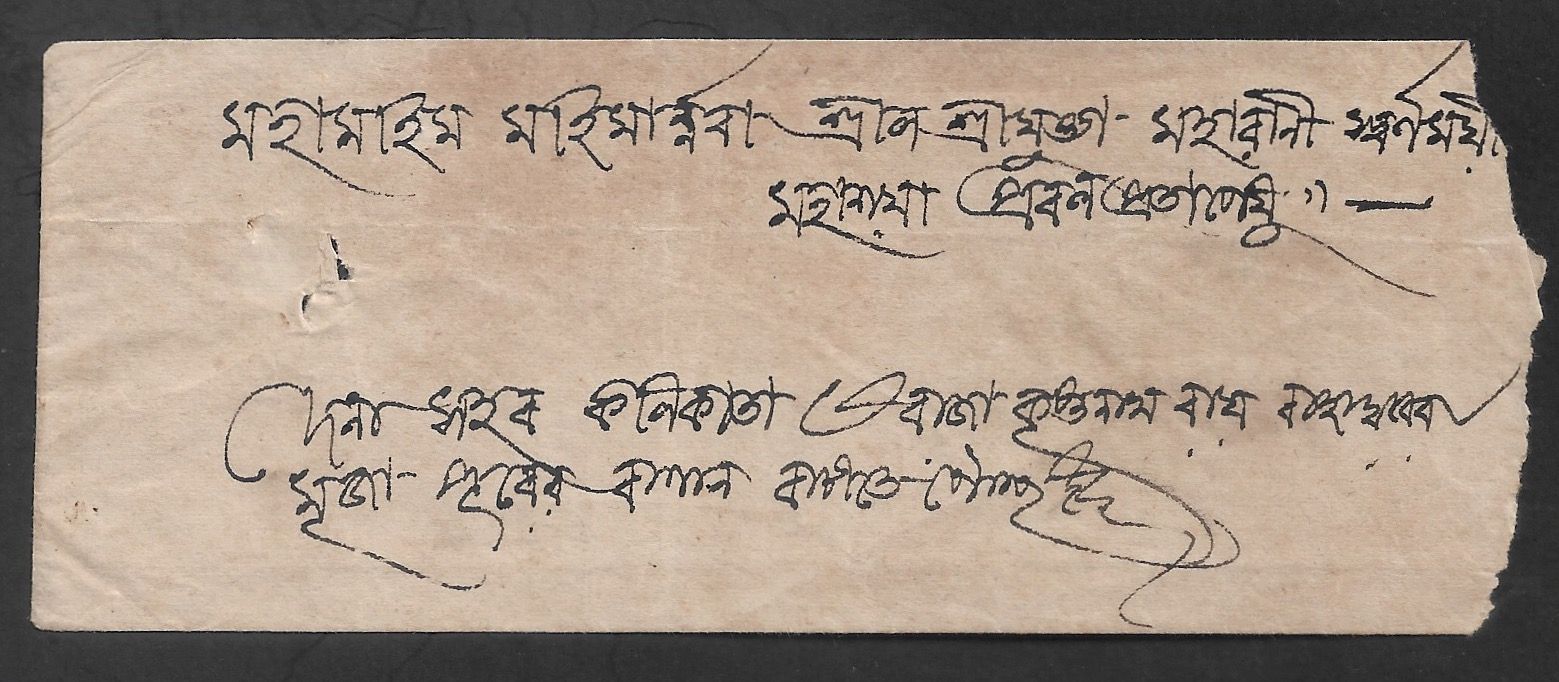 মহামহিম মহিমার্ন্নবা শ্রীল শ্রীযুক্তা মহারানী স্বর্ণময়ী
মহাশয়া প্রবল প্রতাপেষু
জেলা সহর কলিকাতা রাজা কৃষ্ণনাথ রায় বাহাদুরের
মৃজাপুরের বাগান বাটীতে পৌছে